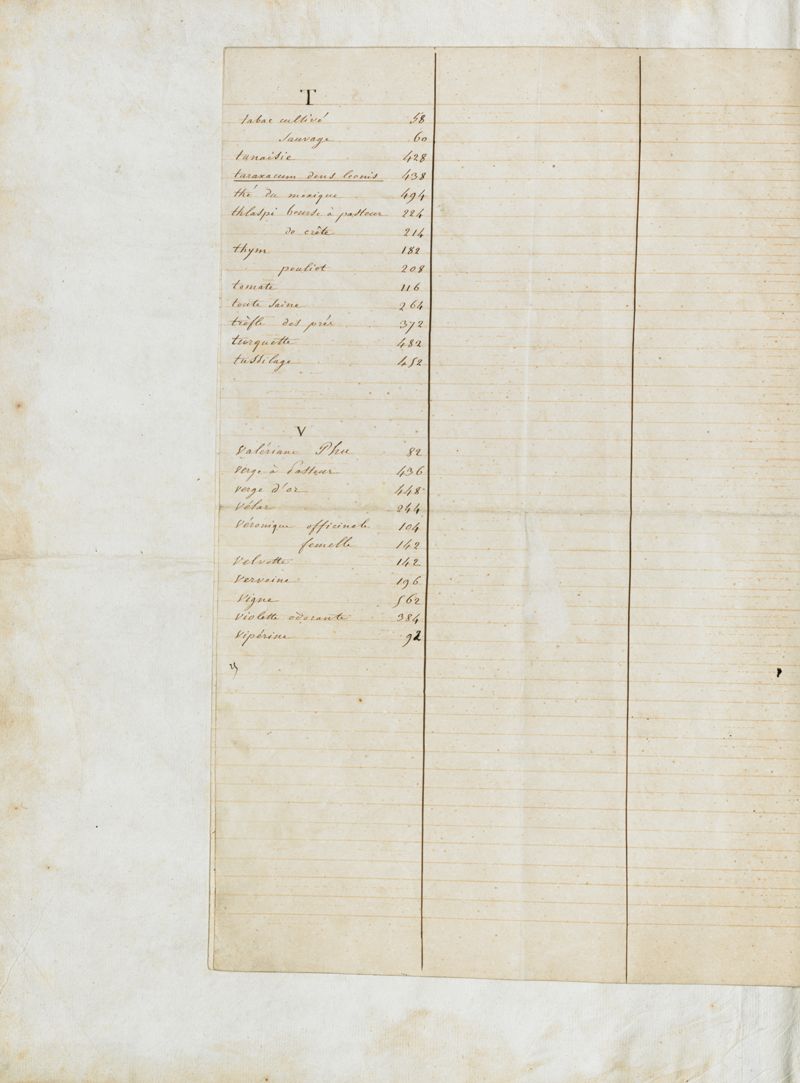 T
tabac cultivé 58
sauvage 60
tanaisie 428
taraxacum dens leonis 438
thé du mexique 494
thlaspi bourse à pasteur 224
de crête 214
thym 182
pouliot 208
tomate 116
toute saine 264
trèfle des prés 372
turquette 482
tussilage 452
V
Valériane Phu 82
verge à Pasteur 436
verge d'or 448
Vélar 244
Véronique officinale 104
femelle 142
Velvotte 142
Verveine 196
Vigne 562
violette odorante 384
Vipérine 92